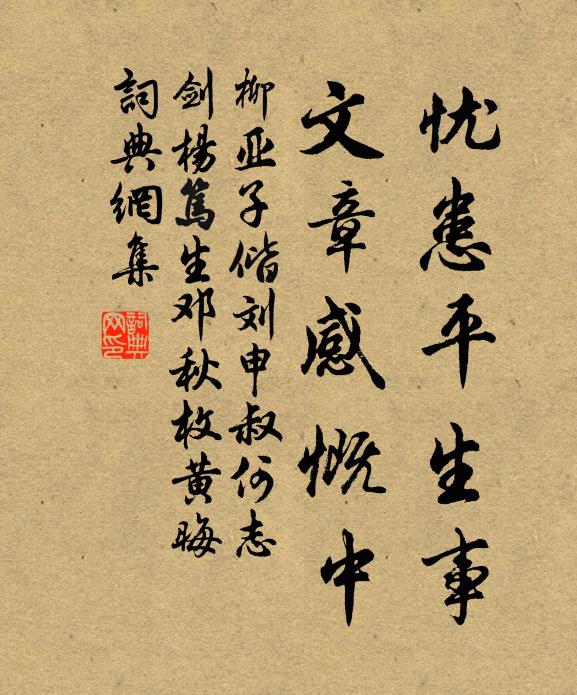 忧患平生事
文章感慨中
柳亚子偕刘申叔何志
剑杨笃生邓秋枚黄晦
詞典網集
詞典
网印